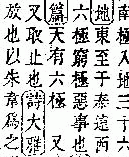 南極入地三十六
地東至于泰遠西
六極窮極惡事也
篇天有六極又
又取止也詩大雅
放也以朱韋為之